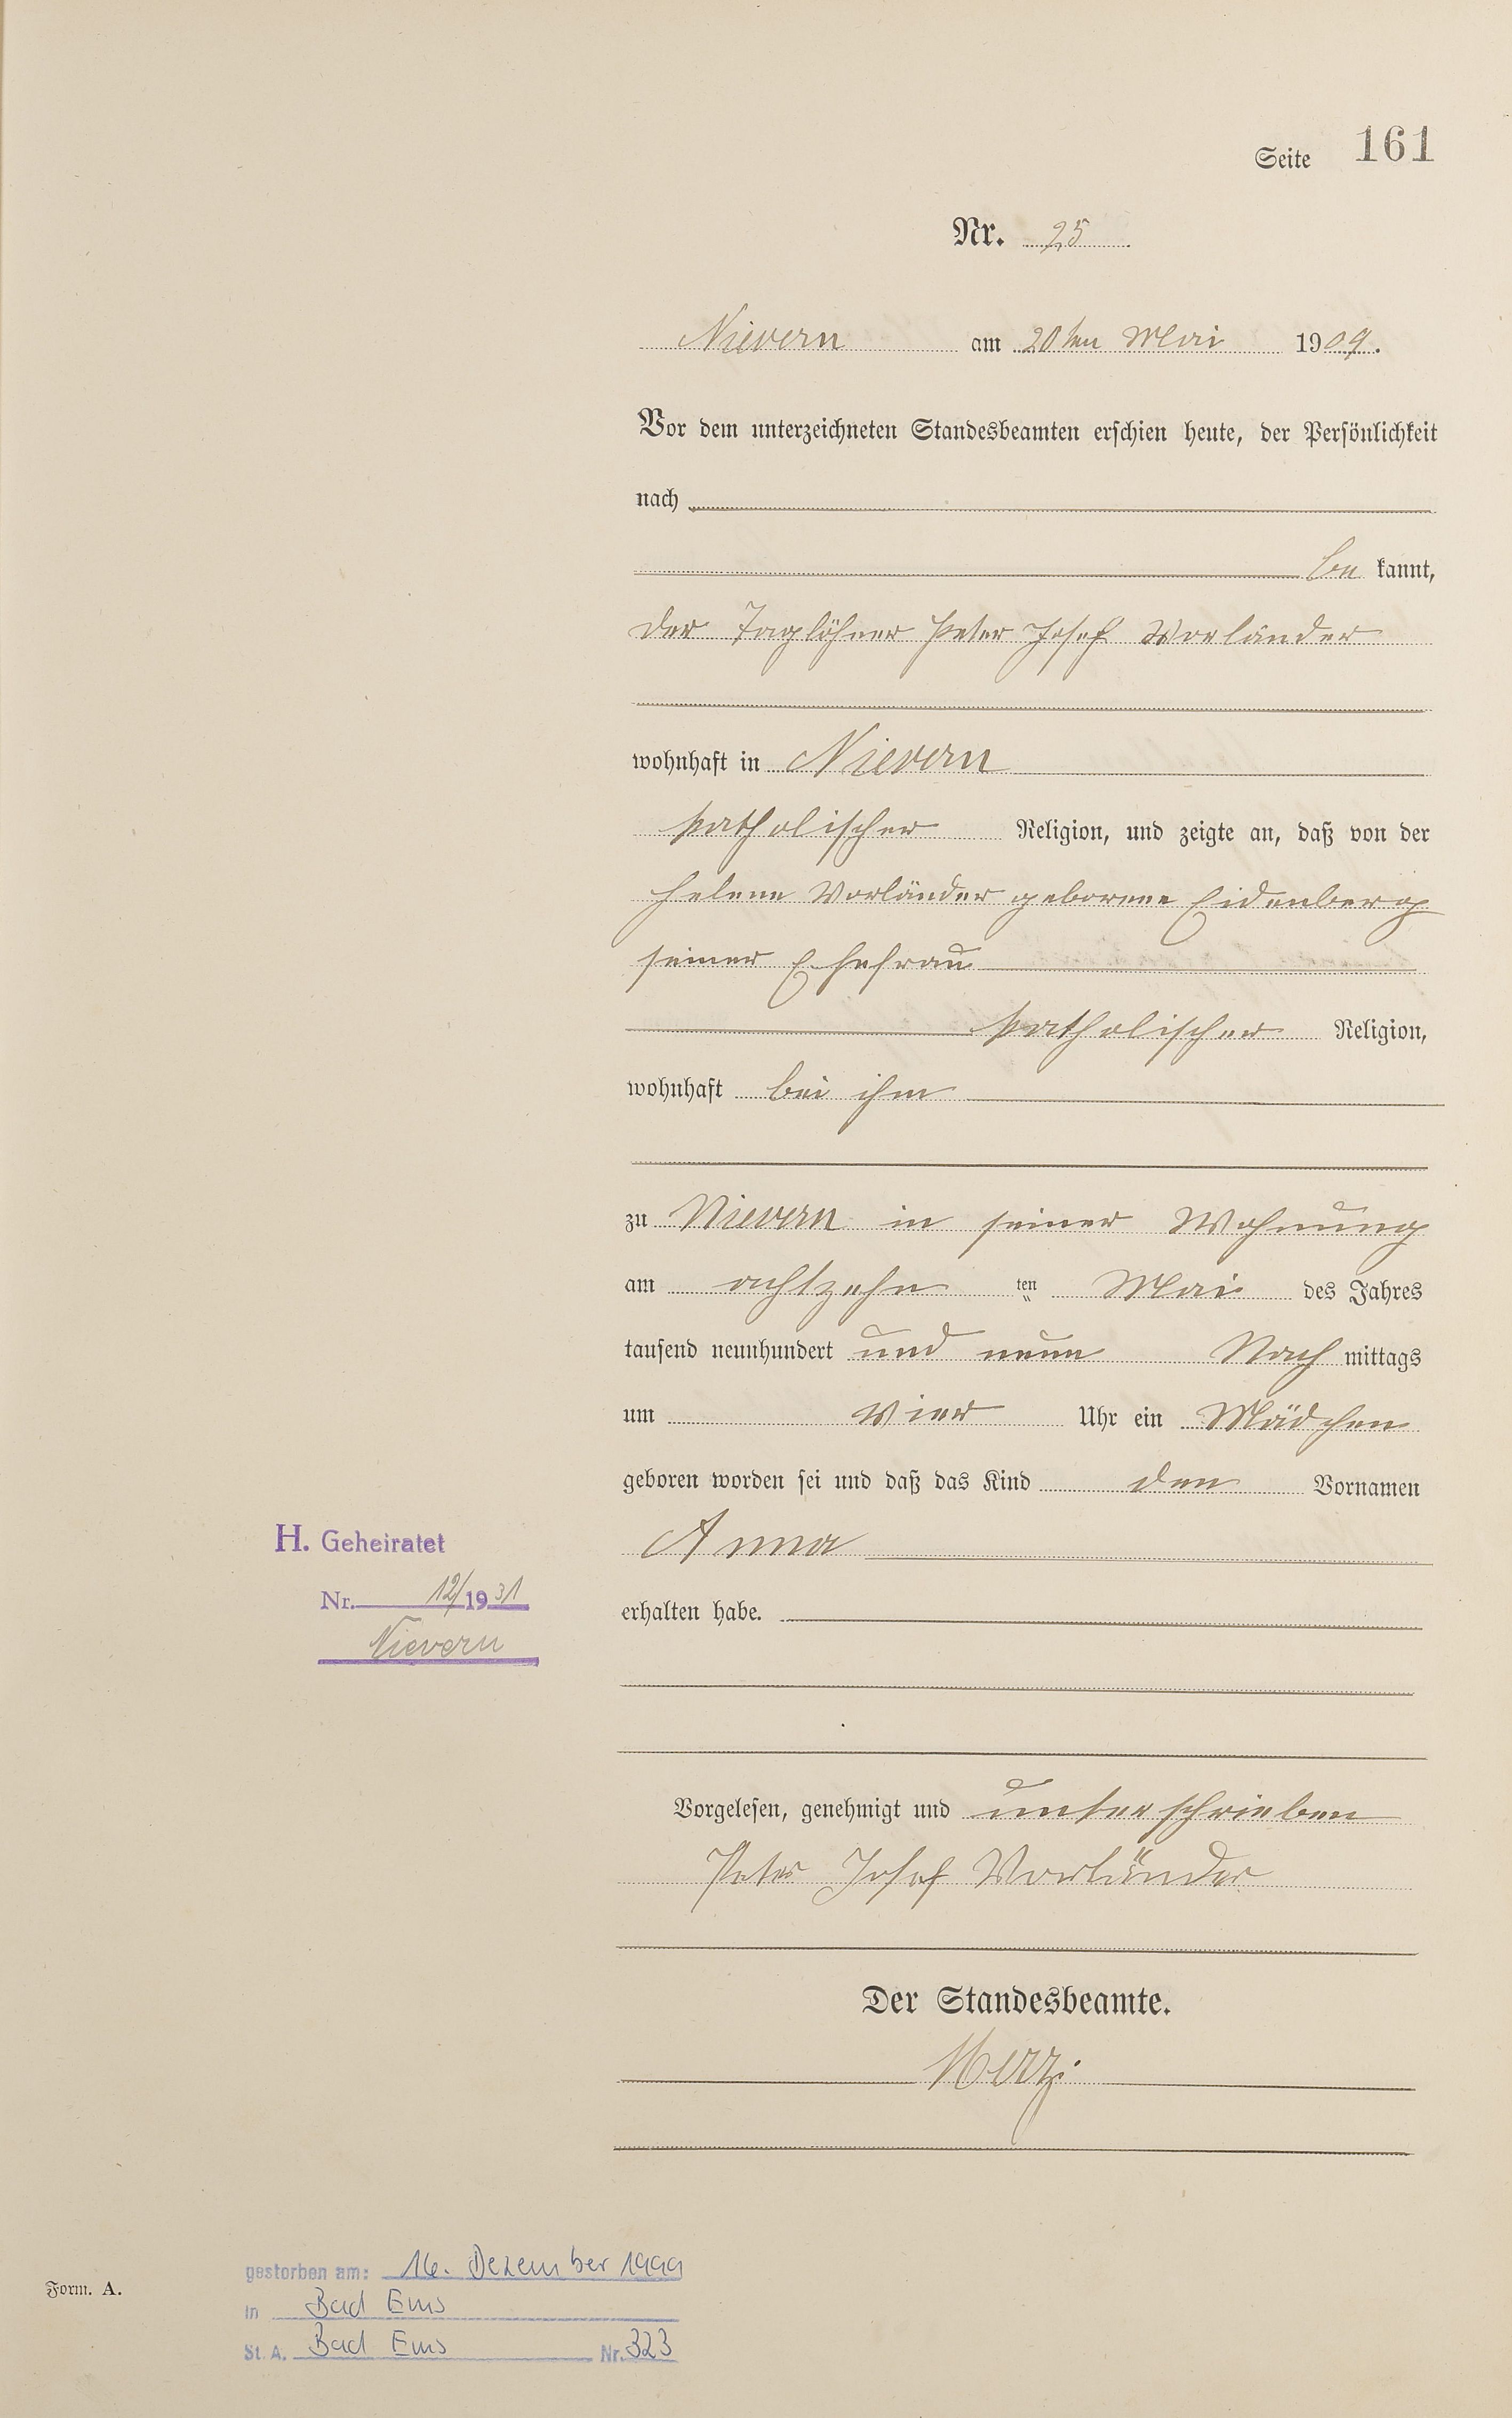 Seite 161
Nr. 25
Nievern am 20ten Mai 1909.
Vor dem unterzeichneten Standesbeamten erschien heute, der Persönlichkeit
nach
be kannt,
der Taglöhner Peter Josef Vorländer
wohnhaft in Nievern
katholischer Religion, und zeigte an, daß von der
Helene Vorländer geborene Eidenberg
seiner Ehefrau
katholischer Religion,
wohnhaft bei ihm
zu Nievern in seiner Wohnung
am achtzehn ten Mai des Jahres
tausend neunhundert und neun Nach mittags
um vier Uhr ein Mädchen
geboren worden sei und daß das Kind den Vornamen
Anna
erhalten habe.
H. Geheiratet
Nr. 12/1931
Nievern
Vorgelesen, genehmigt und unterschrieben
Peter Josef Vorländer
Der Standesbeamte.
Merz.
gestorben am: 16. Dezember 1999
in Bad Ems
St. A. Bad Ems Nr. 323
Form. A.